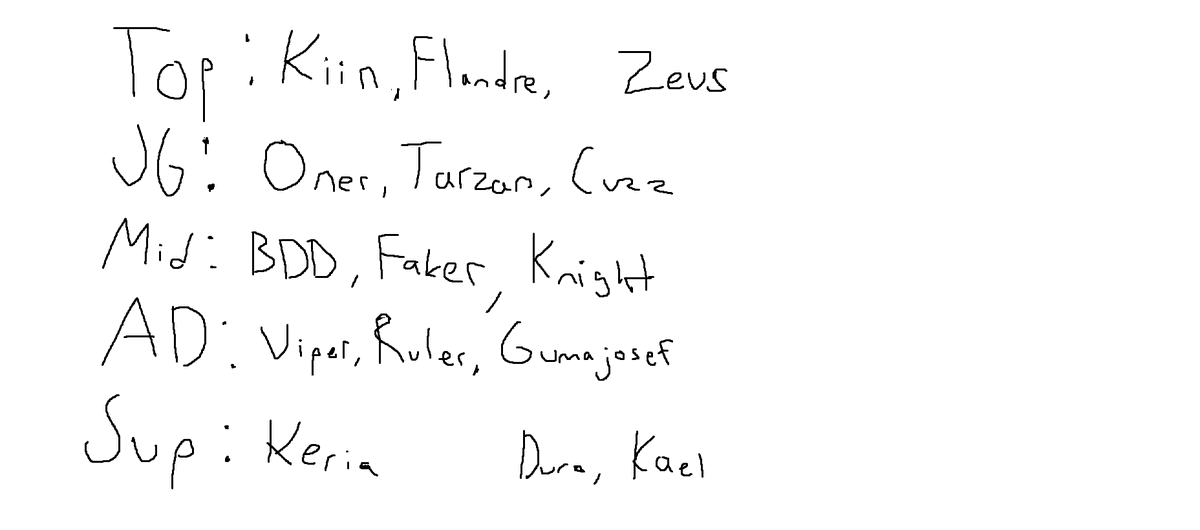 Top: Kiin, Flandre, Zeus
JG: Oner, Tarzan, Cuzz
Mid: BDD, Faker, Knight
AD: Viper, Ruler, Gumajosef
Sup: Keria Duro, Kael